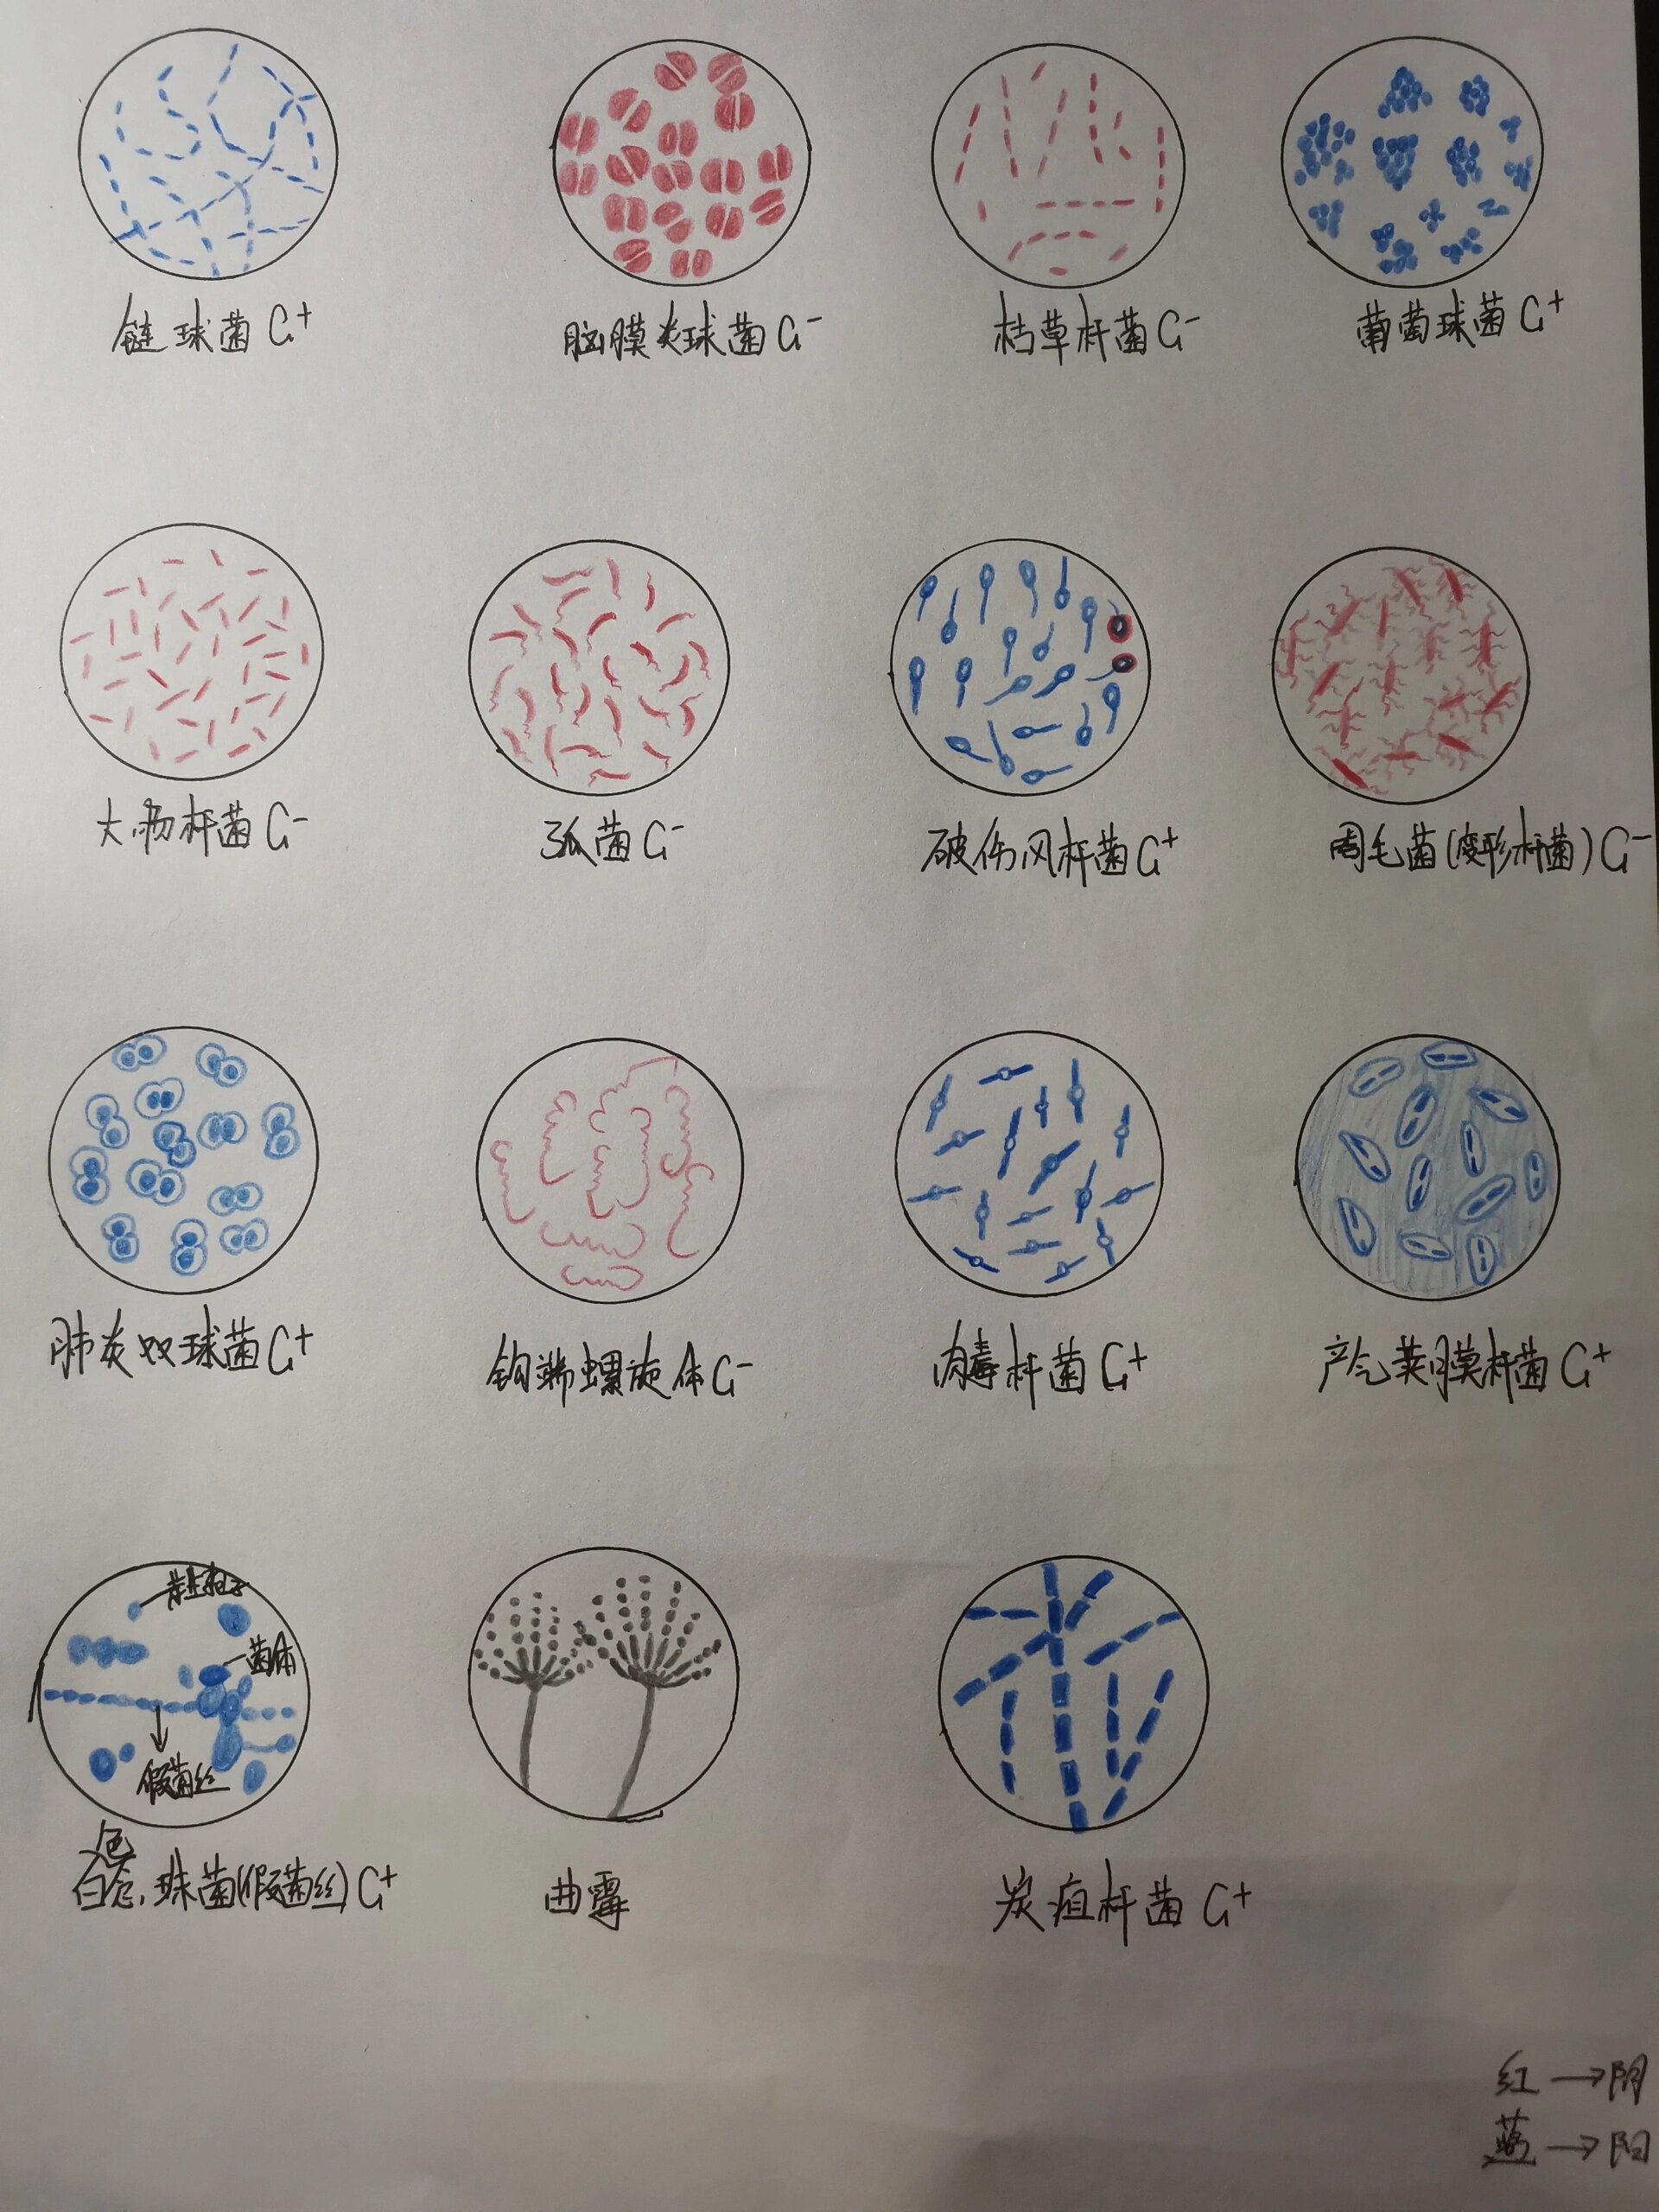 链球菌 G+
脑膜炎球菌G-
枯草杆菌G-
葡萄球菌G+
大肠杆菌G-
弧菌G-
破伤风杆菌G+
周毛菌(变形杆菌)G-
肺炎双球菌G+
钩端螺旋体G-
肉毒杆菌G+
产气荚膜杆菌G+
芽生孢子
菌体
假菌丝
白色念珠菌(假菌丝)G+
曲霉
炭疽杆菌 G+
红→阴
蓝→阳